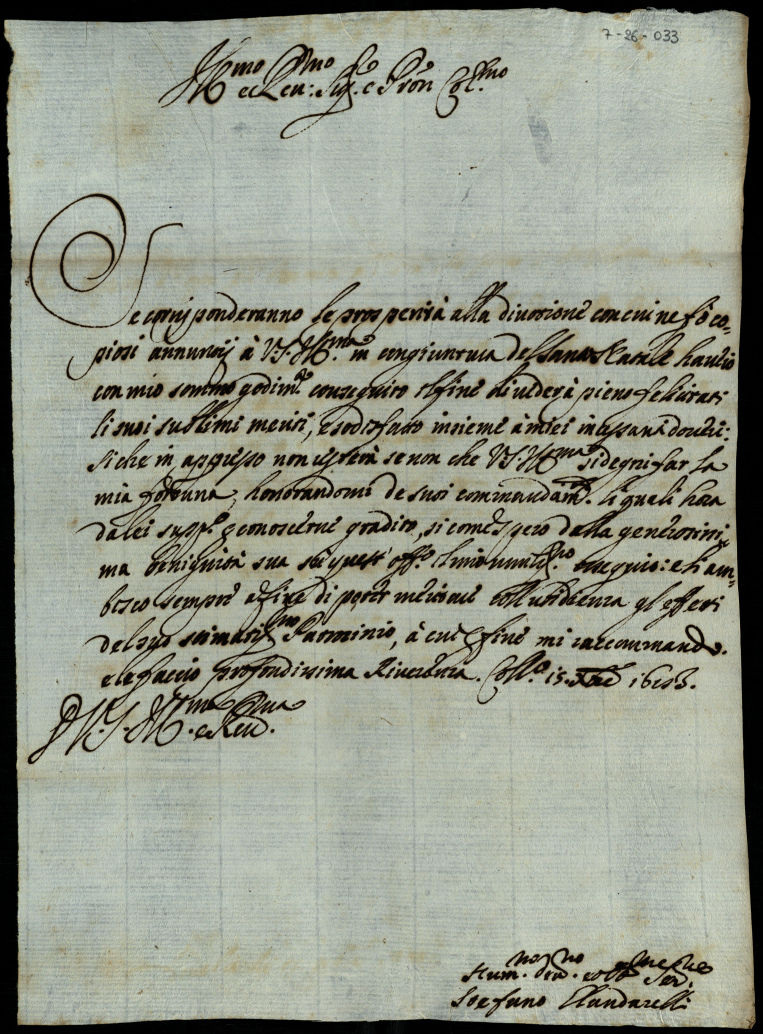 7-26-033
Ill.mo et Reu.mo Sig.re e Pron Col.mo
Se corrisponderanno le prosperità alla diuotione con cui ne fò co=
piosi annuntij à V.S. Ill.ma in congiuntura del Santo Natale hauerò
con mio sommo godim.to conseguito il fine di ueder à pieno felicitati
li suoi sublimi meriti, e sodisfatto insieme à miei
si che in appresso non resterà se non che V.S. Ill.ma si degni far la
mia fortuna, honorandomi de suoi commandam.ti li quali hora
da lei supp.co conoscerne gradito, si come spero dalla generosissi=
ma benignità sua questi off.ij il mio humiliss.mo ossequio: et am=
bisco sempre à fine di poter meritare coll'ubidienza gl'effetti
del suo stimatiss.mo Patrocinio, à cui per fine mi raccommando.
e le faccio profondissima Riuerenza. 15. Xbre
D V.S. Ill.ma e Reu.ma
Hum.mo Deu.mo et Obl.mo Ser.re
Stefano